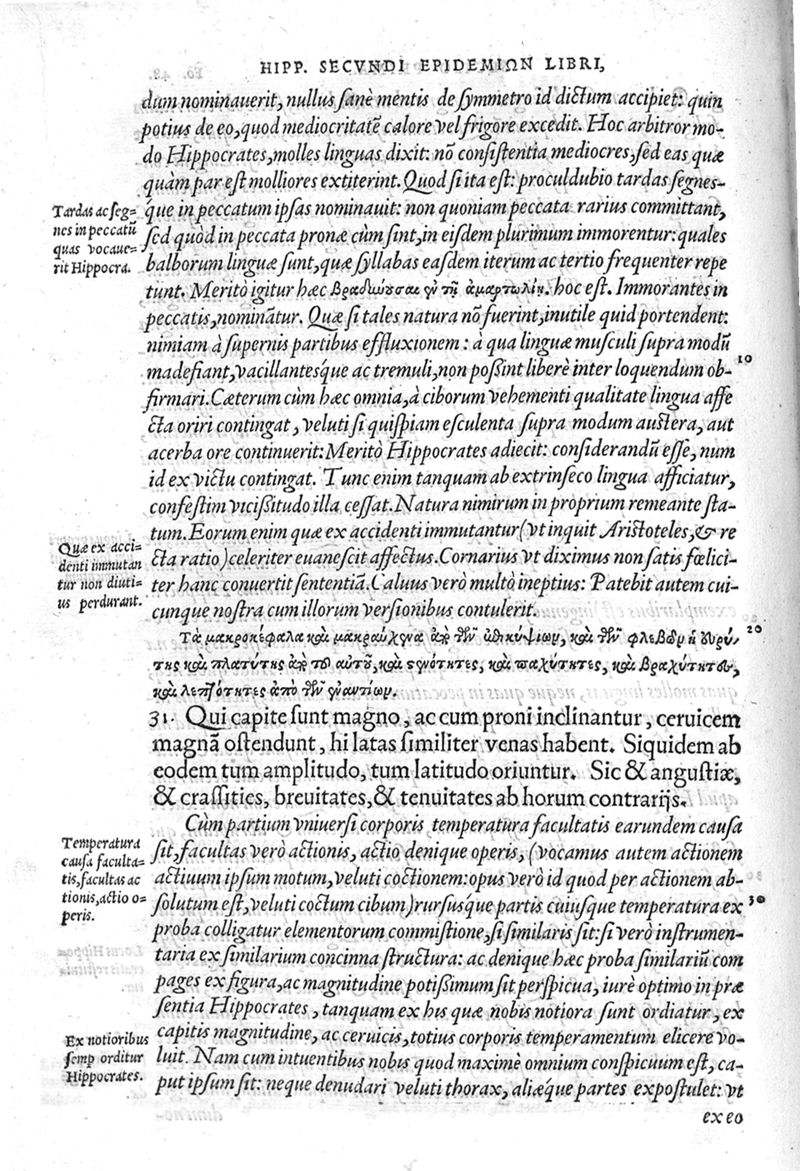 HIPP. SECVNDI EPIDEMIΩN LIBRI,
dum nominauerit, nullus ſanè mentis de ſymmetro id dictum accipiet: quin
potius de eo, quod mediocritatē calore vel frigore excedit. Hoc arbitror mo-
do Hippocrates, molles linguas dixit: nō conſiſtentia mediocres, ſed eas quæ
quàm par eſt molliores extiterint. Quod ſi ita eſt: proculdubio tardas ſegnes-
Tardas ac ſeg=
nes in peccatū
quas vocaue=
rit Hippocra.
q́ue in peccatum ipſas nominauit: non quoniam peccata rarius committant,
ſed quòd in peccata pronæ cùm ſint, in eiſdem plurimum immorentur: quales
balborum linguæ ſunt, quæ ſyllabas eaſdem iterum ac tertio frequenter repe
tunt. Meritò igitur hæc hoc eſt. Immorantes in
peccatis, nominātur. Quæ ſi tales natura nō fuerint, inutile quid portendent:
nimiam à ſupernis partibus effluxionem: à qua linguæ muſculi ſupra modū
10
madefiant, vacillantesque ac tremuli, non poſſint liberè inter loquendum ob-
firmari. Cæterum cùm hæc omnia, à ciborum vehementi qualitate lingua affe
cta oriri contingat, veluti ſi quiſpiam eſculenta ſupra modum auſtera, aut
acerba ore continuerit: Meritò Hippocrates adiecit: conſiderandū eſſe, num
id ex victu contingat. Tunc enim tanquam ab extrinſeco lingua afficiatur,
confeſtim viciſsitudo illa ceſſat. Natura nimirum in proprium remeante ſta-
tum. Eorum enim quæ ex accidenti immutantur (vt inquit Ariſtoteles, & re
Quæ ex acci=
denti immutan
tur non diuti=
us perdurant.
cta ratio) celeriter euaneſcit affectus. Cornarius vt diximus non ſatis fœlici-
ter hanc conuertit ſententiā. Caluus verò multò ineptius: Patebit autem cui-
cunque noſtra cum illorum verſionibus contulerit.
Τὰ μακροκέφαλα καὶ μακραύχενα ἀπὸ τῶν καὶ τῶν φλεβῶν ἡ εὐρύ-
20
της καὶ πλατύτης ἀπὸ τοῦ αὐτοῦ, καὶ στενότητες, καὶ παχύτητες, καὶ βραχύτητες,
καὶ λεπτότητες ἀπὸ τῶν ἐναντίων.
31. Qui capite ſunt magno, ac cum proni inclinantur, ceruicem
magnā oſtendunt, hi latas ſimiliter venas habent. Siquidem ab
eodem tum amplitudo, tum latitudo oriuntur. Sic & anguſtiæ,
& craſſities, breuitates, & tenuitates ab horum contrarijs.
Cùm partium vniuerſi corporis temperatura facultatis earundem cauſa
Temperatura
cauſa faculta=
tis, facultas ac
tionis, actio o=
peris.
ſit, facultas verò actionis, actio denique operis, (vocamus autem actionem
actiuum ipſum motum, veluti coctionem: opus verò id quod per actionem ab-
ſolutum eſt, veluti coctum cibum) rurſusq́ue partis cuiuſque temperatura ex
30
proba colligatur elementorum commiſtione, ſi ſimilaris ſit: ſi verò inſtrumen-
taria ex ſimilarium concinna ſtructura: ac denique hæc proba ſimilariū com
pages ex figura, ac magnitudine potiſſimum ſit perſpicua, iurè optimo in præ
ſentia Hippocrates, tanquam ex his quæ nobis notiora ſunt ordiatur, ex
Ex notioribus
ſemp orditur
Hippocrates.
capitis magnitudine, ac ceruicis, totius corporis temperamentum elicere vo-
luit. Nam cum intuentibus nobis quod maximè omnium conſpicuum eſt, ca-
put ipſum ſit: neque denudari veluti thorax, aliæq́ue partes expoſtulet: vt
ex eo